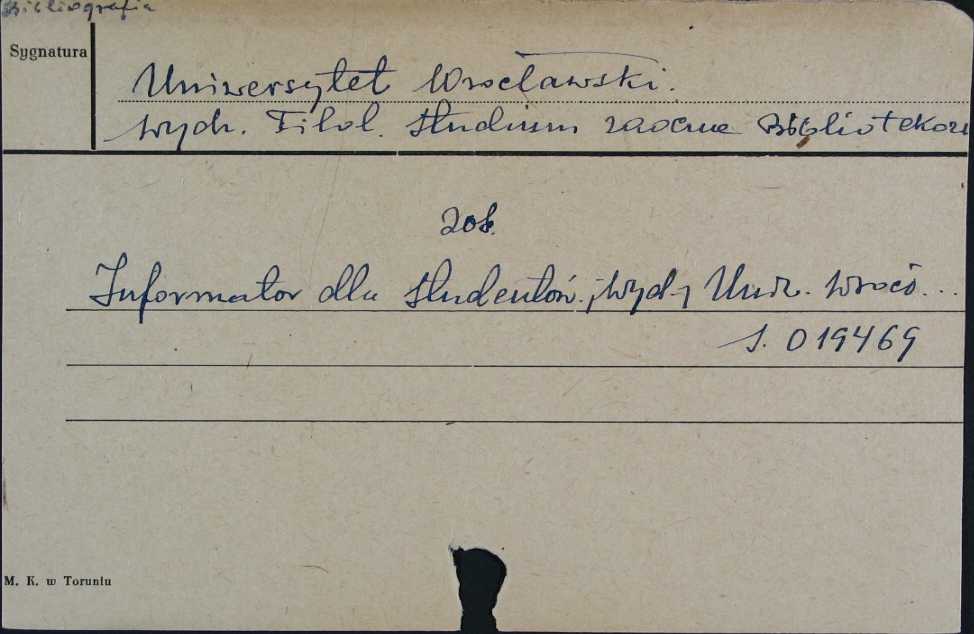 Bibliografia
Sygnatura
Uniwersytet Wrocławski.
Wydz. Filol. Studium zaoczne Bibliotekozn
zob.
Informator dla studentów. [Wyd.] Uniw. Wrocł...
S. 019469
M. K. w Toruniu